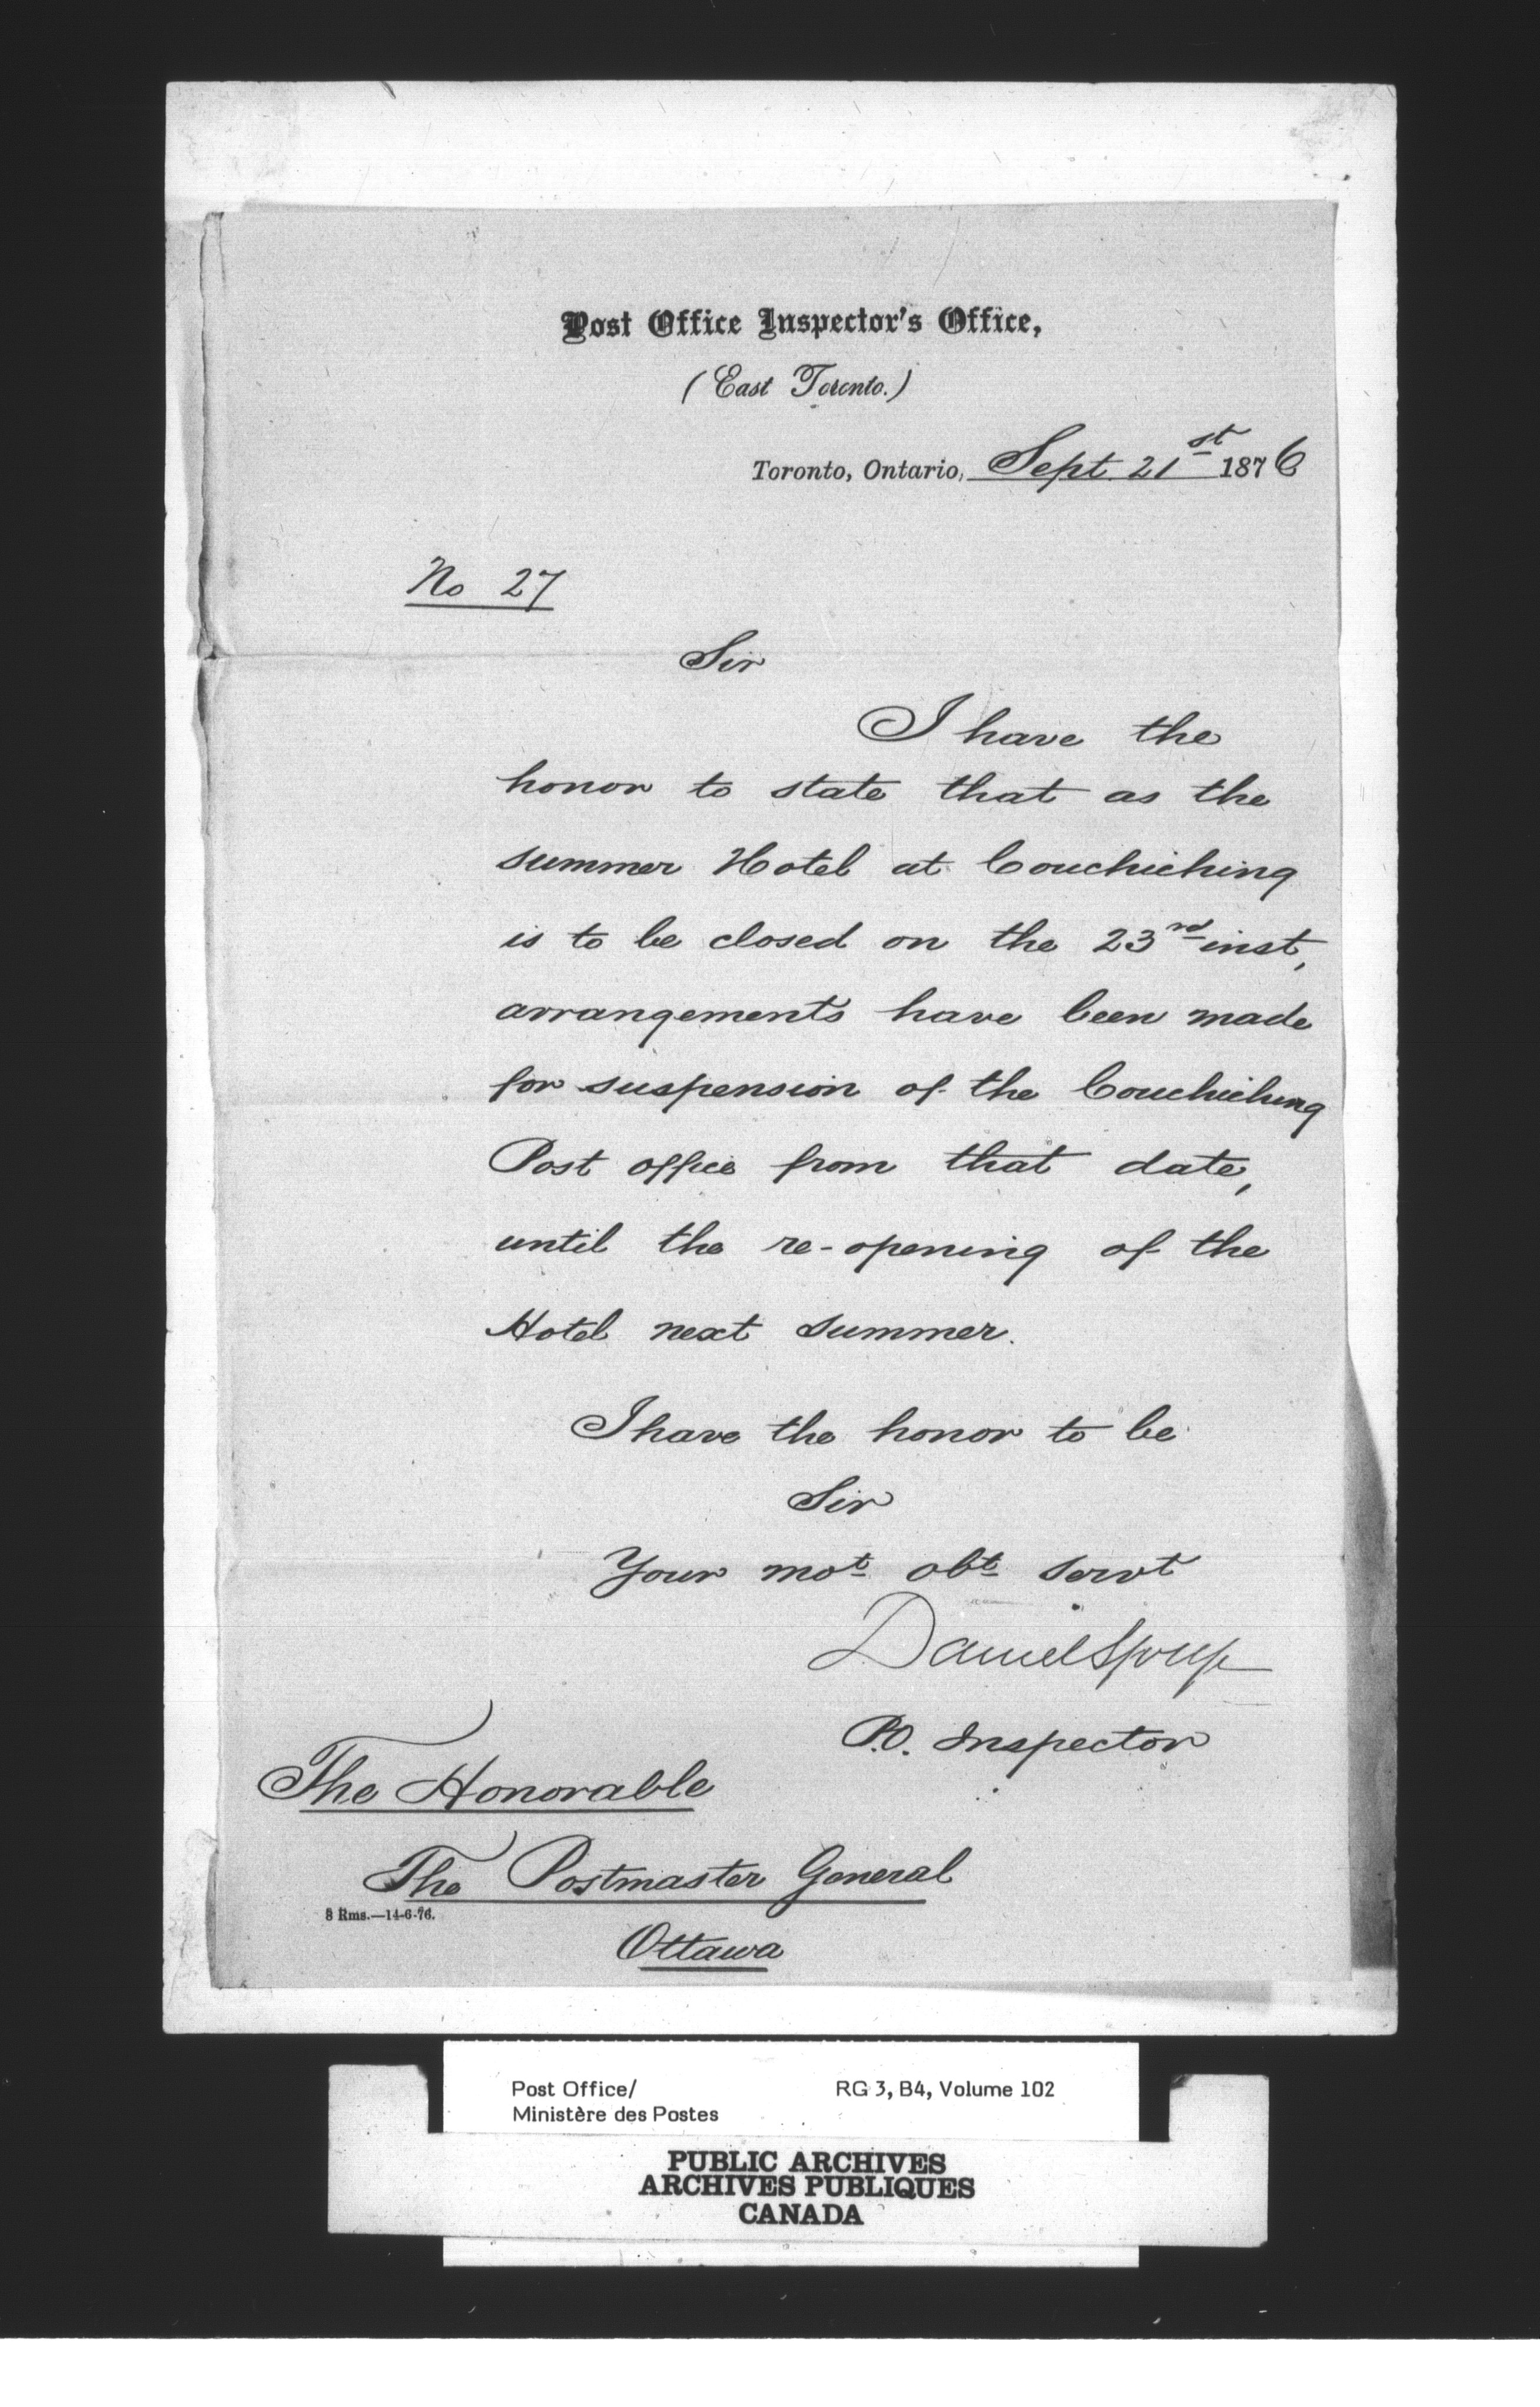 Post Office Inspector's Office,
(East Toronto.)
Toronto, Ontario, Sept. 21st 1876
No 27
Sir
I have the
honor to state that as the
summer Hotel at Couchiching
is to be closed on the 23rd inst,
arrangements have been made
for suspension of the Couchiching
Post office from that date,
until the re-opening of the
Hotel next summer.
I have the honor to be
Sir
Your mot obt servt
Daniel Spry
P.O. Inspector
The Honorable
The Postmaster General
8 Rms.—14-6-76.
Ottawa
Post Office/ RG 3, B4, Volume 102
Ministère des Postes
PUBLIC ARCHIVES
ARCHIVES PUBLIQUES
CANADA